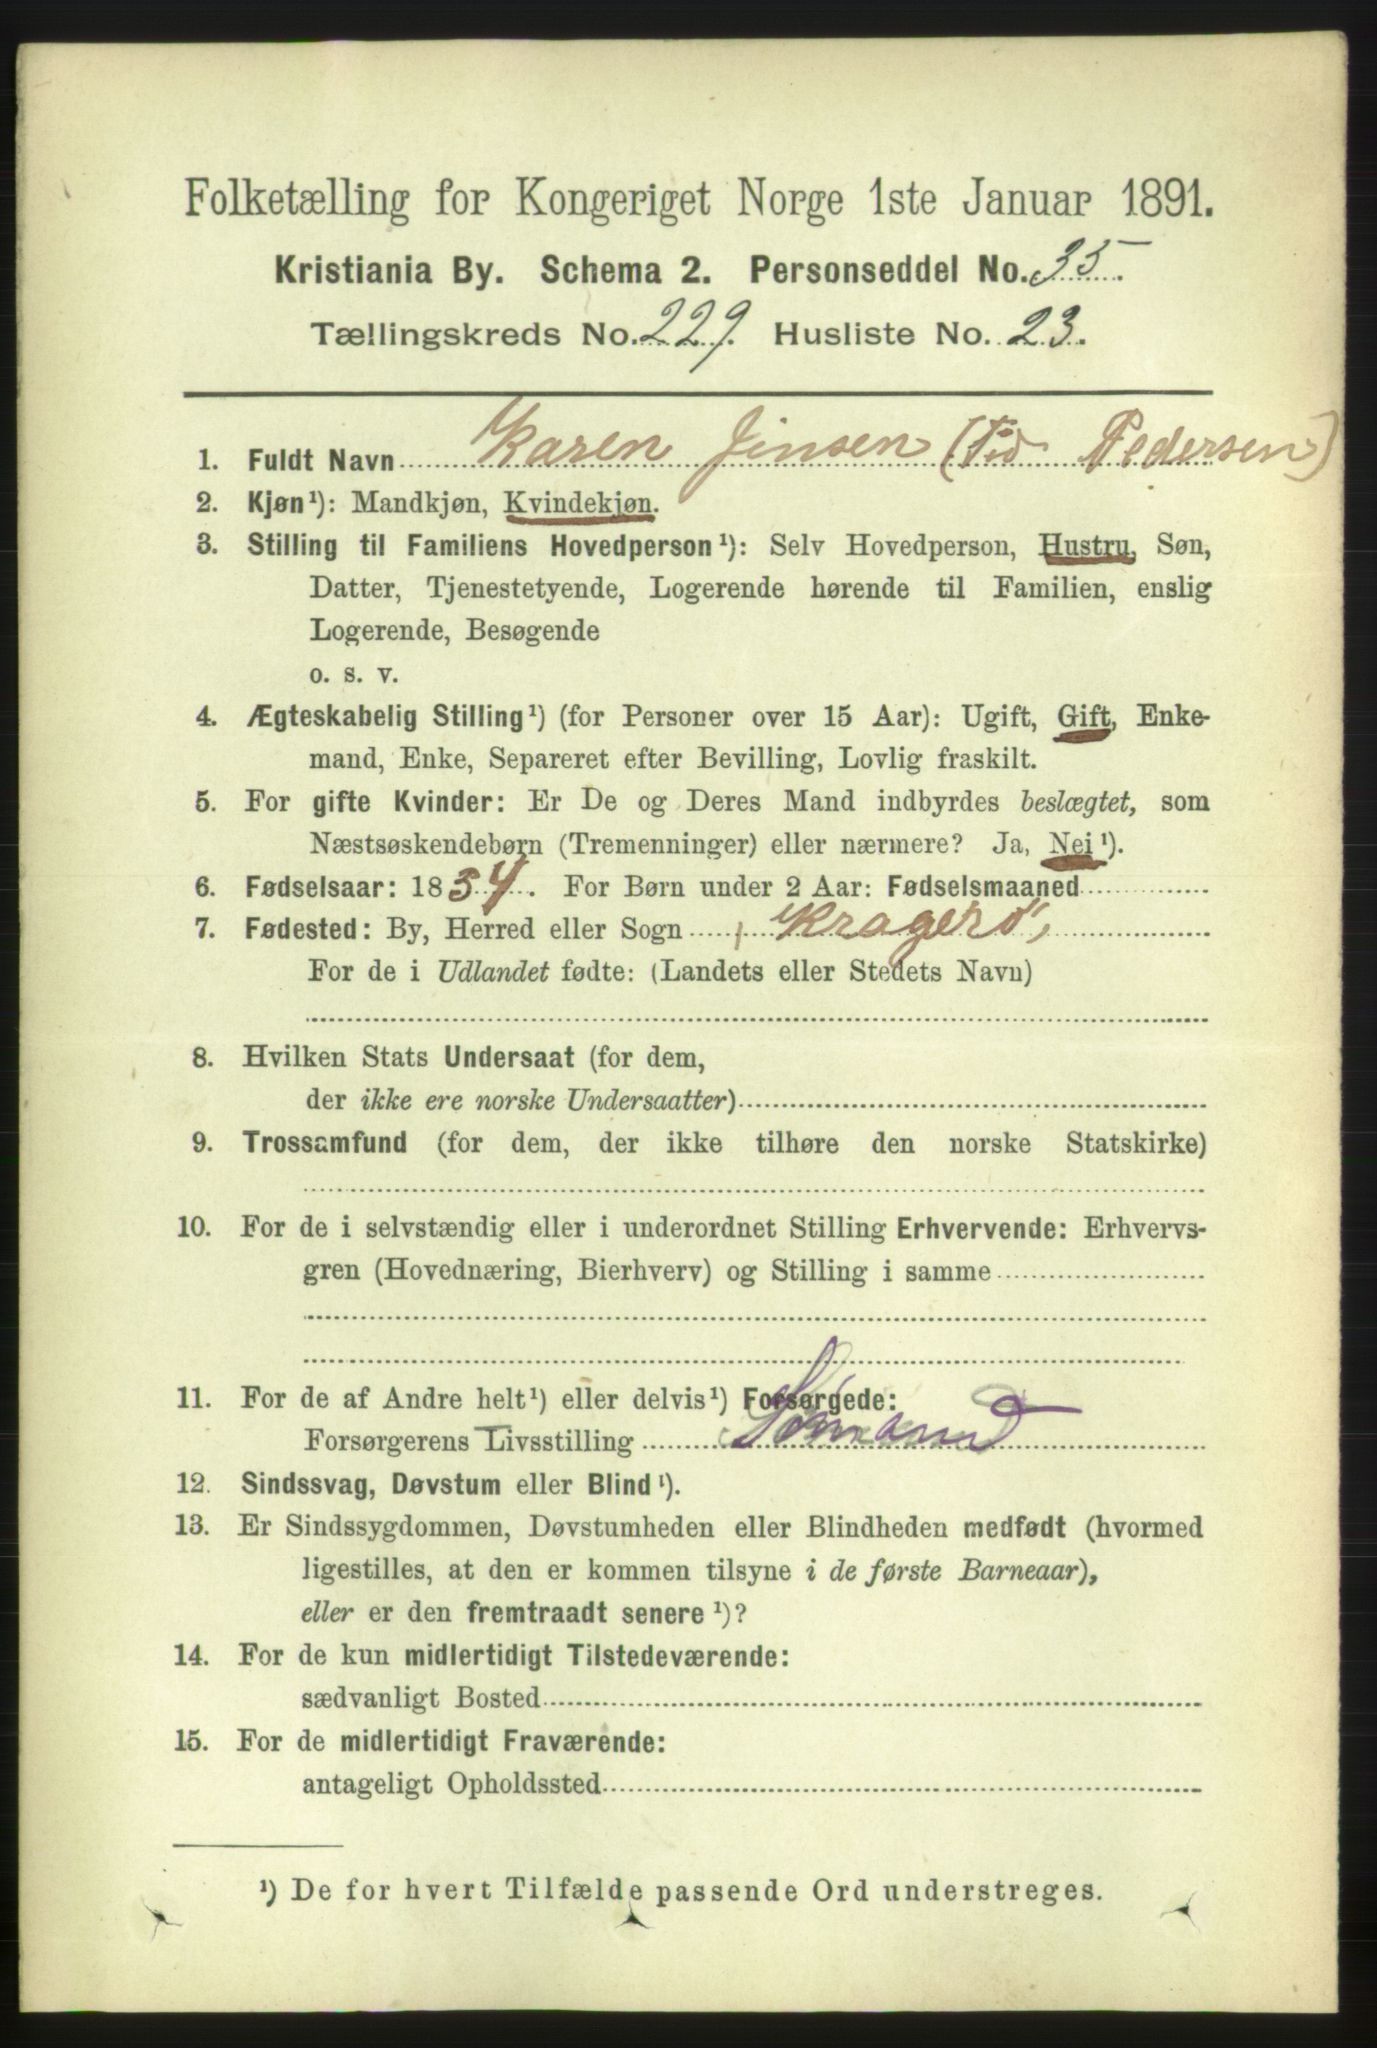 Folketælling for Kongeriget Norge 1ste Januar 1891.
Kristiania By. Schema 2. Personseddel No. 35.
Tællingskreds No. 229. Husliste No. 23.
1. Fuldt Navn Karen Jinsen (fød Pedersen)
2. Kjøn¹): Mandkjøn, Kvindekjøn.
3. Stilling til Familiens Hovedperson¹): Selv Hovedperson, Hustru, Søn,
Datter, Tjenestetyende, Logerende hørende til Familien, enslig
Logerende, Besøgende
o. s. v.
4. Ægteskabelig Stilling¹) (for Personer over 15 Aar): Ugift, Gift, Enke-
mand, Enke, Separeret efter Bevilling, Lovlig fraskilt.
5. For gifte Kvinder: Er De og Deres Mand indbyrdes beslægtet, som
Næstsøskendebørn (Tremenninger) eller nærmere? Ja, Nei¹).
6. Fødselsaar: 1854. For Børn under 2 Aar: Fødselsmaaned
7. Fødested: By, Herred eller Sogn Kragerø,
For de i Udlandet fødte: (Landets eller Stedets Navn)
8. Hvilken Stats Undersaat (for dem,
der ikke ere norske Undersaatter)
9. Trossamfund (for dem, der ikke tilhøre den norske Statskirke)
10. For de i selvstændig eller i underordnet Stilling Erhvervende: Erhvervs-
gren (Hovednæring, Bierhverv) og Stilling i samme
11. For de af Andre helt¹) eller delvis¹) Forsørgede:
Forsørgerens Livsstilling Sømand
12. Sindssvag, Døvstum eller Blind¹).
13. Er Sindssygdommen, Døvstumheden eller Blindheden medfødt (hvormed
ligestilles, at den er kommen tilsyne i de første Barneaar),
eller er den fremtraadt senere¹)?
14. For de kun midlertidigt Tilstedeværende:
sædvanligt Bosted
15. For de midlertidigt Fraværende:
antageligt Opholdssted
¹) De for hvert Tilfælde passende Ord understreges.